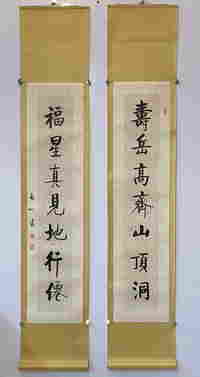 壽岳高齊山頂洞
福星真見地行僊